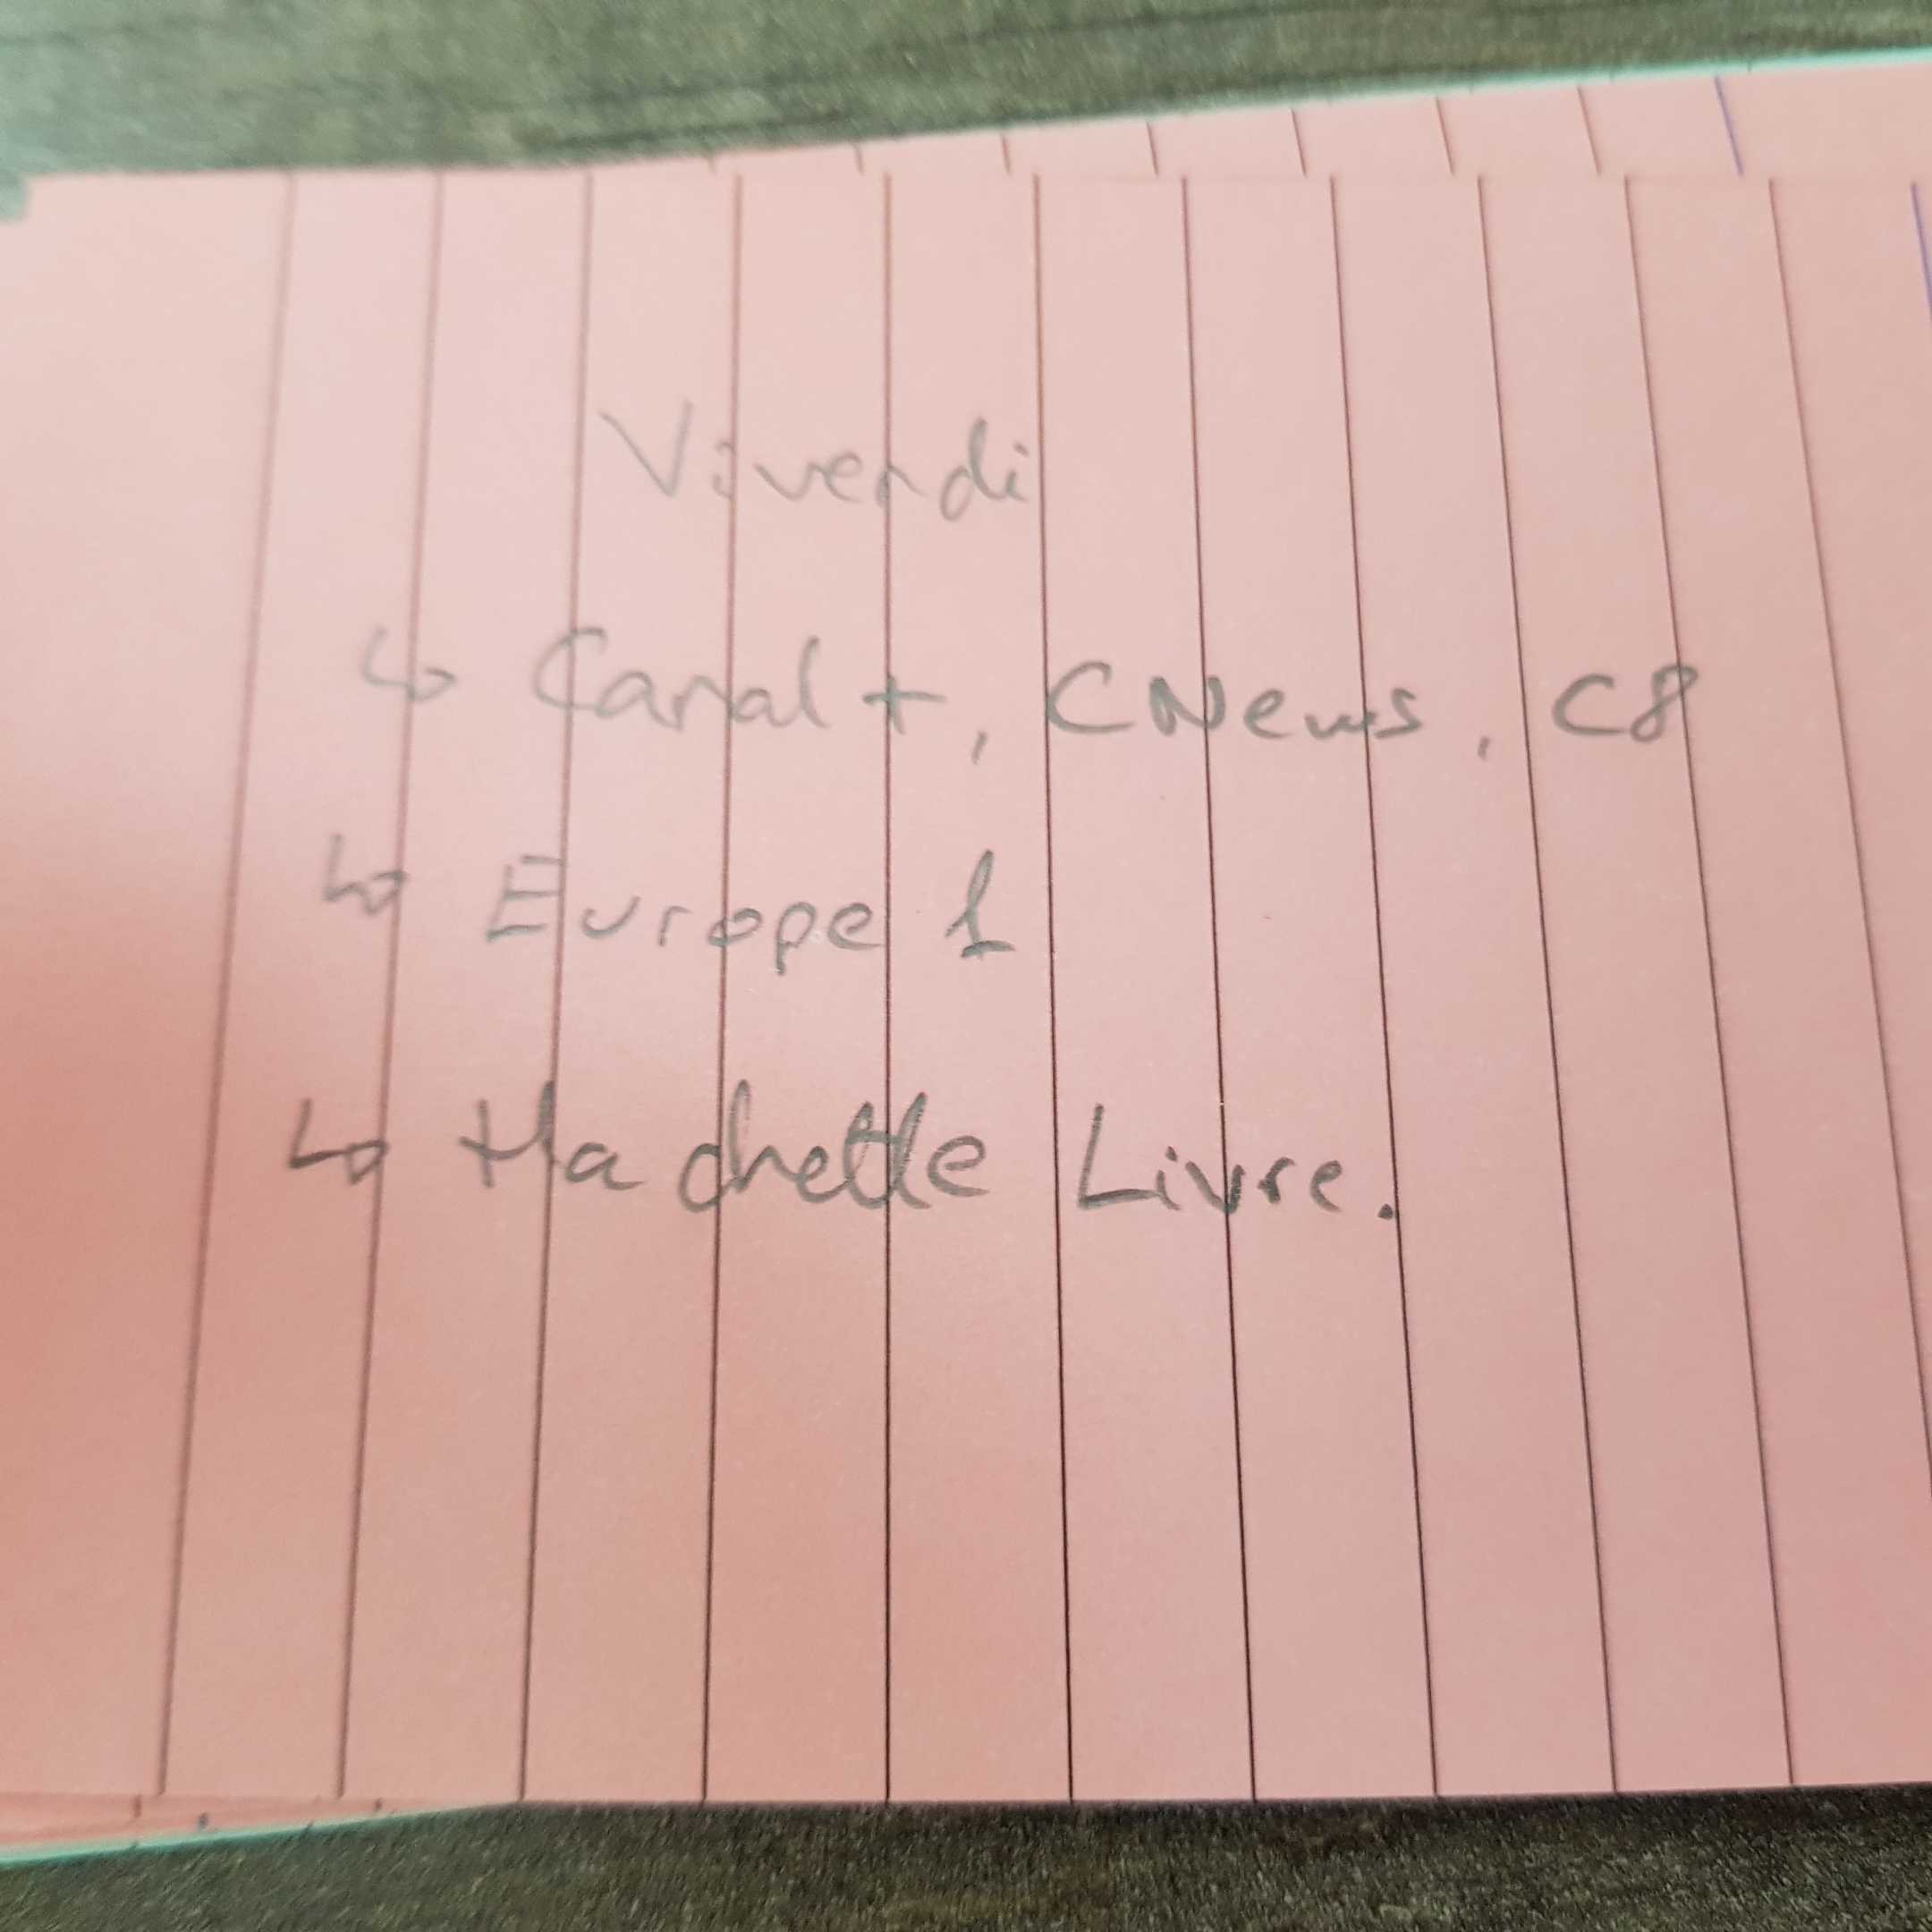 Vivendi
↳ Canal+, CNews, C8
↳ Europe 1
↳ Hachette Livre.